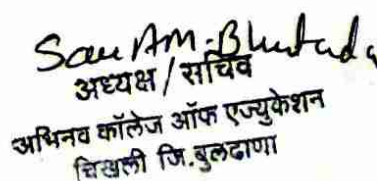 Sau AM. Bhutada
अध्यक्ष / सचिव
अभिनव कॉलेज ऑफ एज्युकेशन
चिखली जि.बुलढाणा